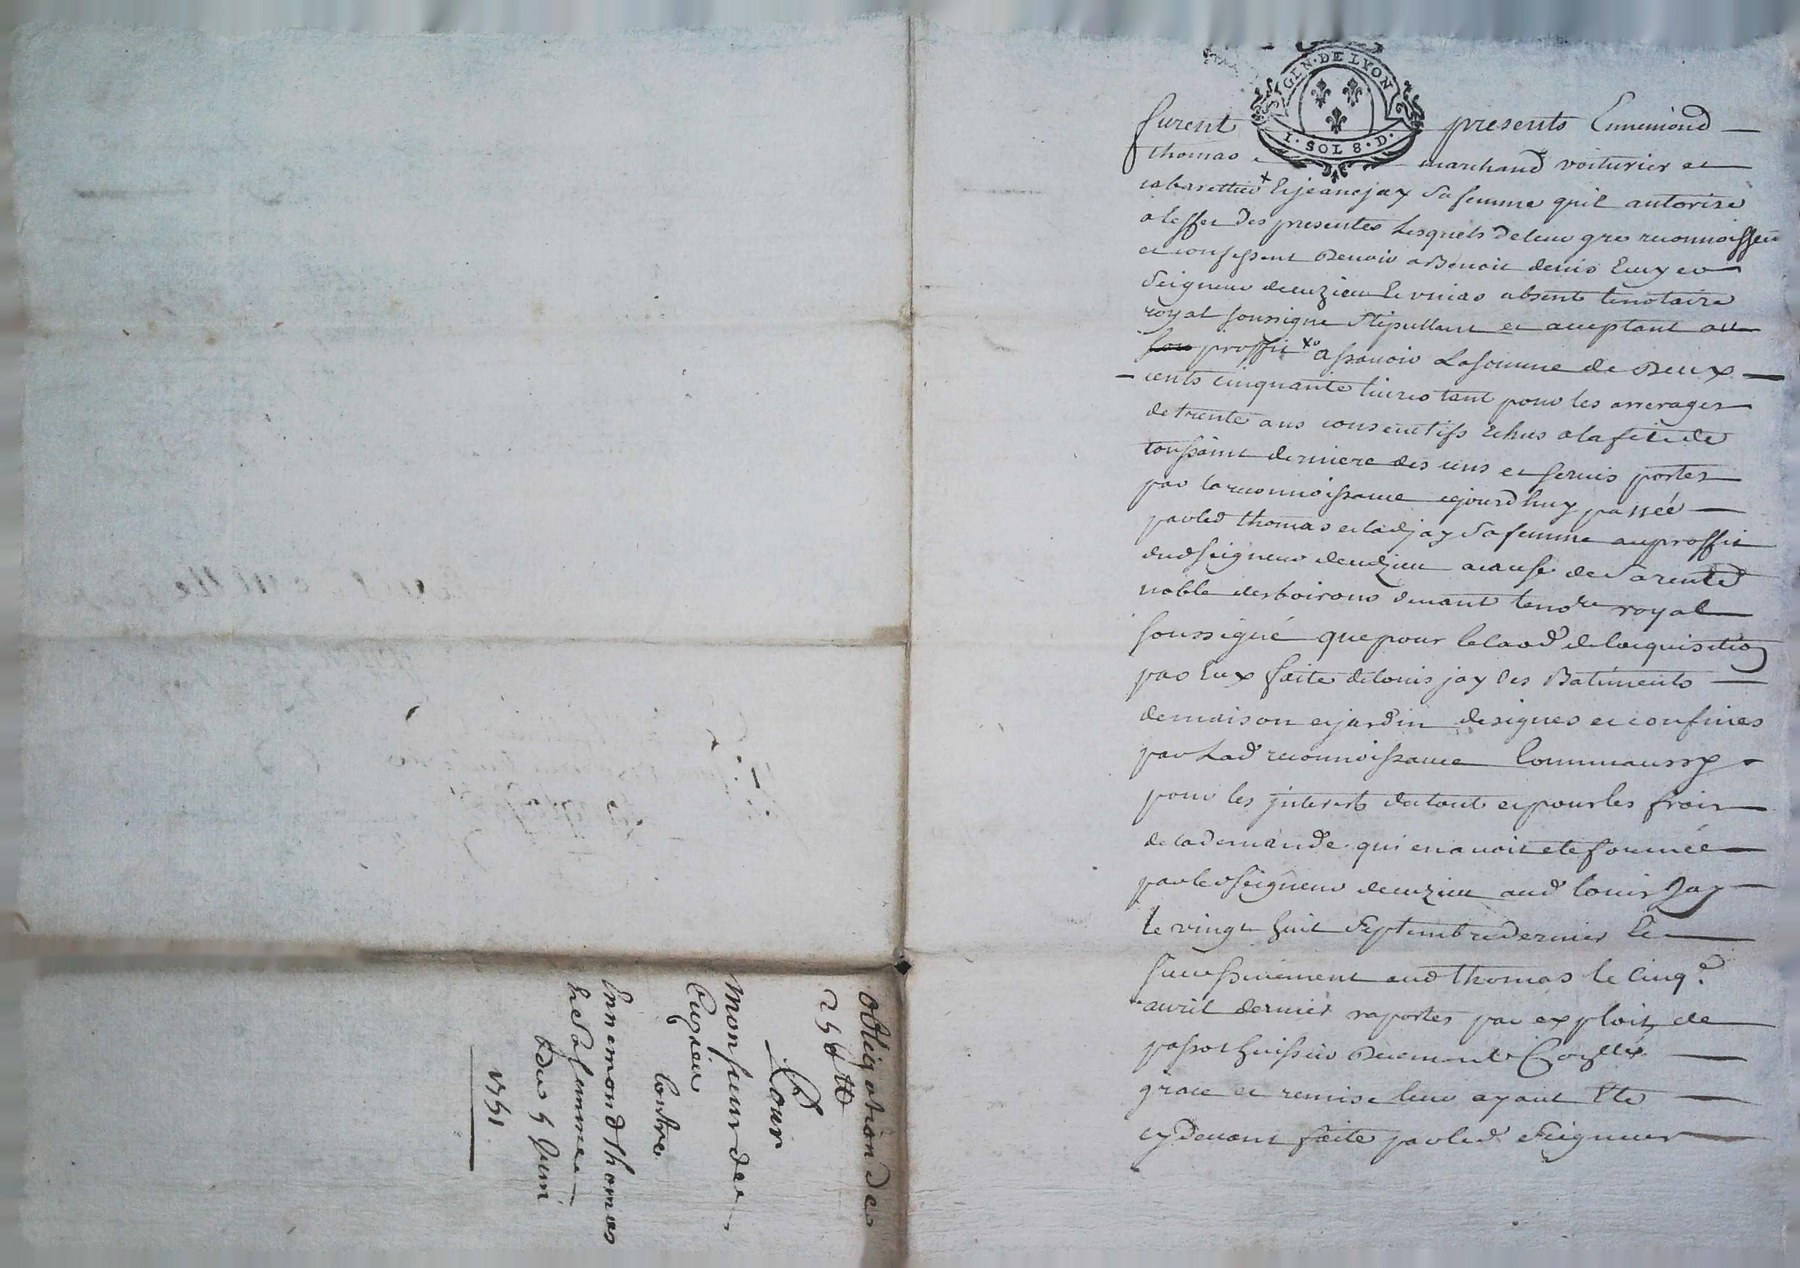 GEN · DE LYON
I · SOL 8 · D ·
furent presents Ennemond
thomas marchand voiturier et
cabarettier + & jeane jay sa femme quil autorize
a leffet des presentes Lesquels de leur gré reconnoissent
et confessent Devoir a Benoit denis
Seigneur deuzieu absent le notaire
royal soussigne stipullant et acceptant au
proffit assavoir La somme de Deux
cents cinquante livres tant pour les arrerages
de trente ans consecutifs Echus a la fete de
toussaint derniere des cens et servis portes
par la reconnoissance cejourdhuy passée
par led thomas et lad jay sa femme au proffit
dud seigneur deuzieu a cause de sa rente
noble des boirons devant le nore royal
soussigné que pour le laod de lacquisition
par Eux faite de louis jay des Batiments
de maison et jardin designes et confines
par Lad reconnoissance Comme aussy
pour les jnterests du tout et pour les frais
de la demande qui en avoit ete formée
par le d seigneur deuzieu aud louis Jay
le vingt huit Septembre dernier &
successivement aud thomas le cinq.e
avril dernier raportes par exploit de
huissier
grace et remise leur ayant Ete
cy Devant faite par led Seigneur
Obligation de
250 ₶
Pour
Monsieur de
Cuzieu
Contre
Ennemond thomas
& Sa femme
Du 5 Juin
1751.